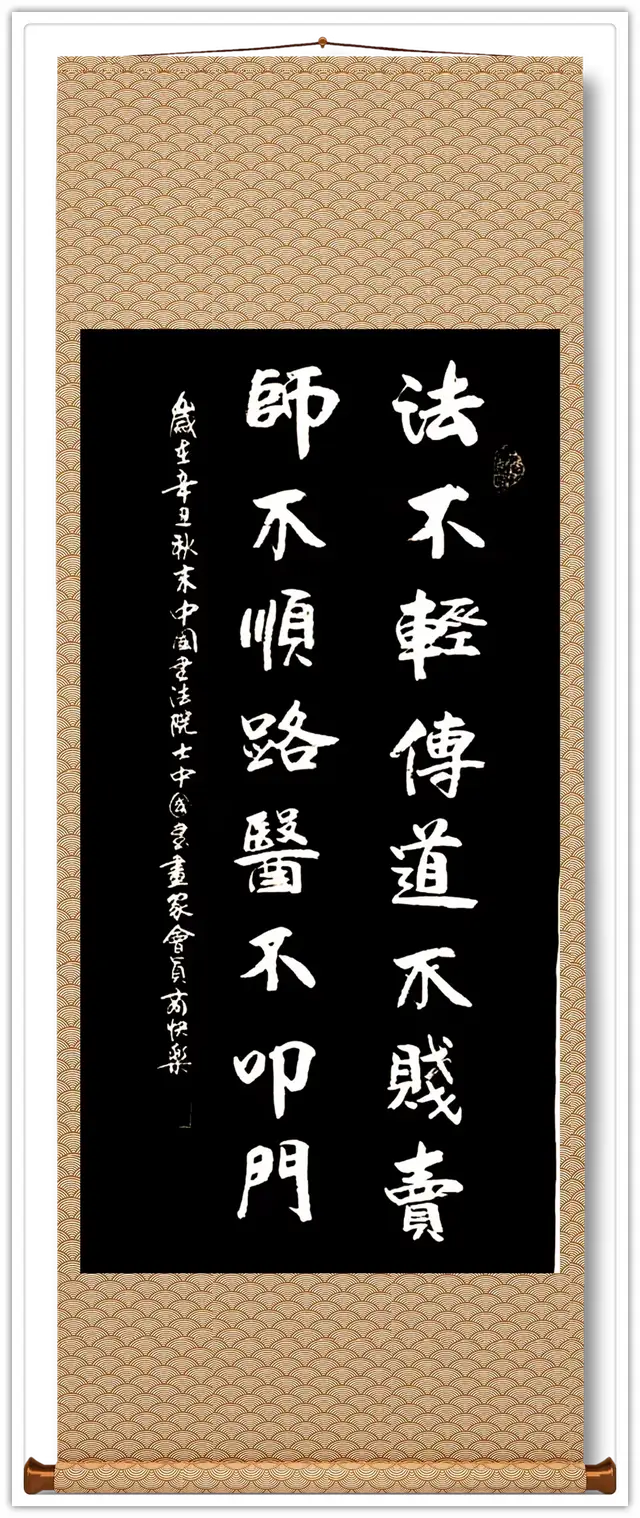 法不輕傳道不賤賣
師不順路醫不叩門
歲在辛丑秋末中国书法院士中國書畫家會員 快樂